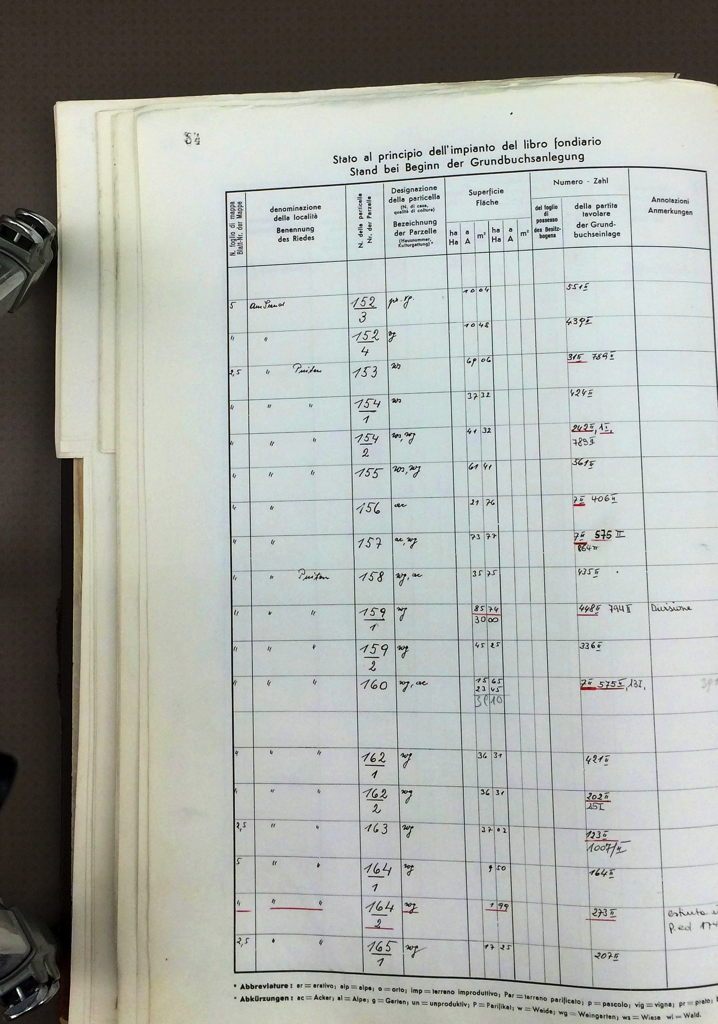 84
Stato al principio dell'impianto del libro fondiario
Stand bei Beginn der Grundbuchsanlegung
N. foglio di mappa
Blatt-Nr. der Mappe
denominazione
della località
Benennung
des Riedes
N. della particella
Nr. der Parzelle
Designazione
della particella
(N. di casa,
qualità di coltura)
Bezeichnung
der Parzelle
(Hausnummer,
Kulturgattung)*
Superficie
Fläche
ha a m² ha a m²
Ha A Ha A
Numero - Zahl
del foglio
di
possesso
des Besitz-
bogens
della partita
tavolare
der Grund-
buchseinlage
Annotazioni
Anmerkungen
5 152/3 10 04 551 II
" " 152/4 wg 10 48 439 II
2,5 " 153 ws 69 06 31 II 789 II
" " " 154/1 ws 37 32 424 II
" " " 154/2 ws, wg 41 32 242 II, 1 I,
789 II
" " " 155 ws, wg 61 41 561 II
" " 156 ac 21 76 7 II 406 II
" " 157 ac, wg 73 77 7 II 575 II
864 II
" " 158 wg, ac 35 75 435 II
" " " 159/1 wg 85 74 448 II 794 II Divisione
30 00
" " " 159/2 wg 45 25 336 II
" " " 160 wg, ac 15 65 7 II 575 II, 13 I,
23 45
39 10
" " " 162/1 wg 36 31 421 II
" " " 162/2 wg 36 31 202 II
25 I
2,5 " " 163 wg 37 02 123 II
1007/II
5 " " 164/1 wg 9 50 164 II
" " " 164/2 wg 1 99 273 II
P.ed 174
2,5 " " 165/1 wg 17 25 207 II
* Abbreviature: ar = arativo; alp = alpe; o = orto; imp = terreno improduttivo; Par = terreno parificato; p = pascolo; vig = vigna; pr = prato;
* Abkürzungen: ac = Acker; al = Alpe; g = Garten; un = unproduktiv; P = Parifikat; w = Weide; wg = Weingarten; ws = Wiese wl = Wald.